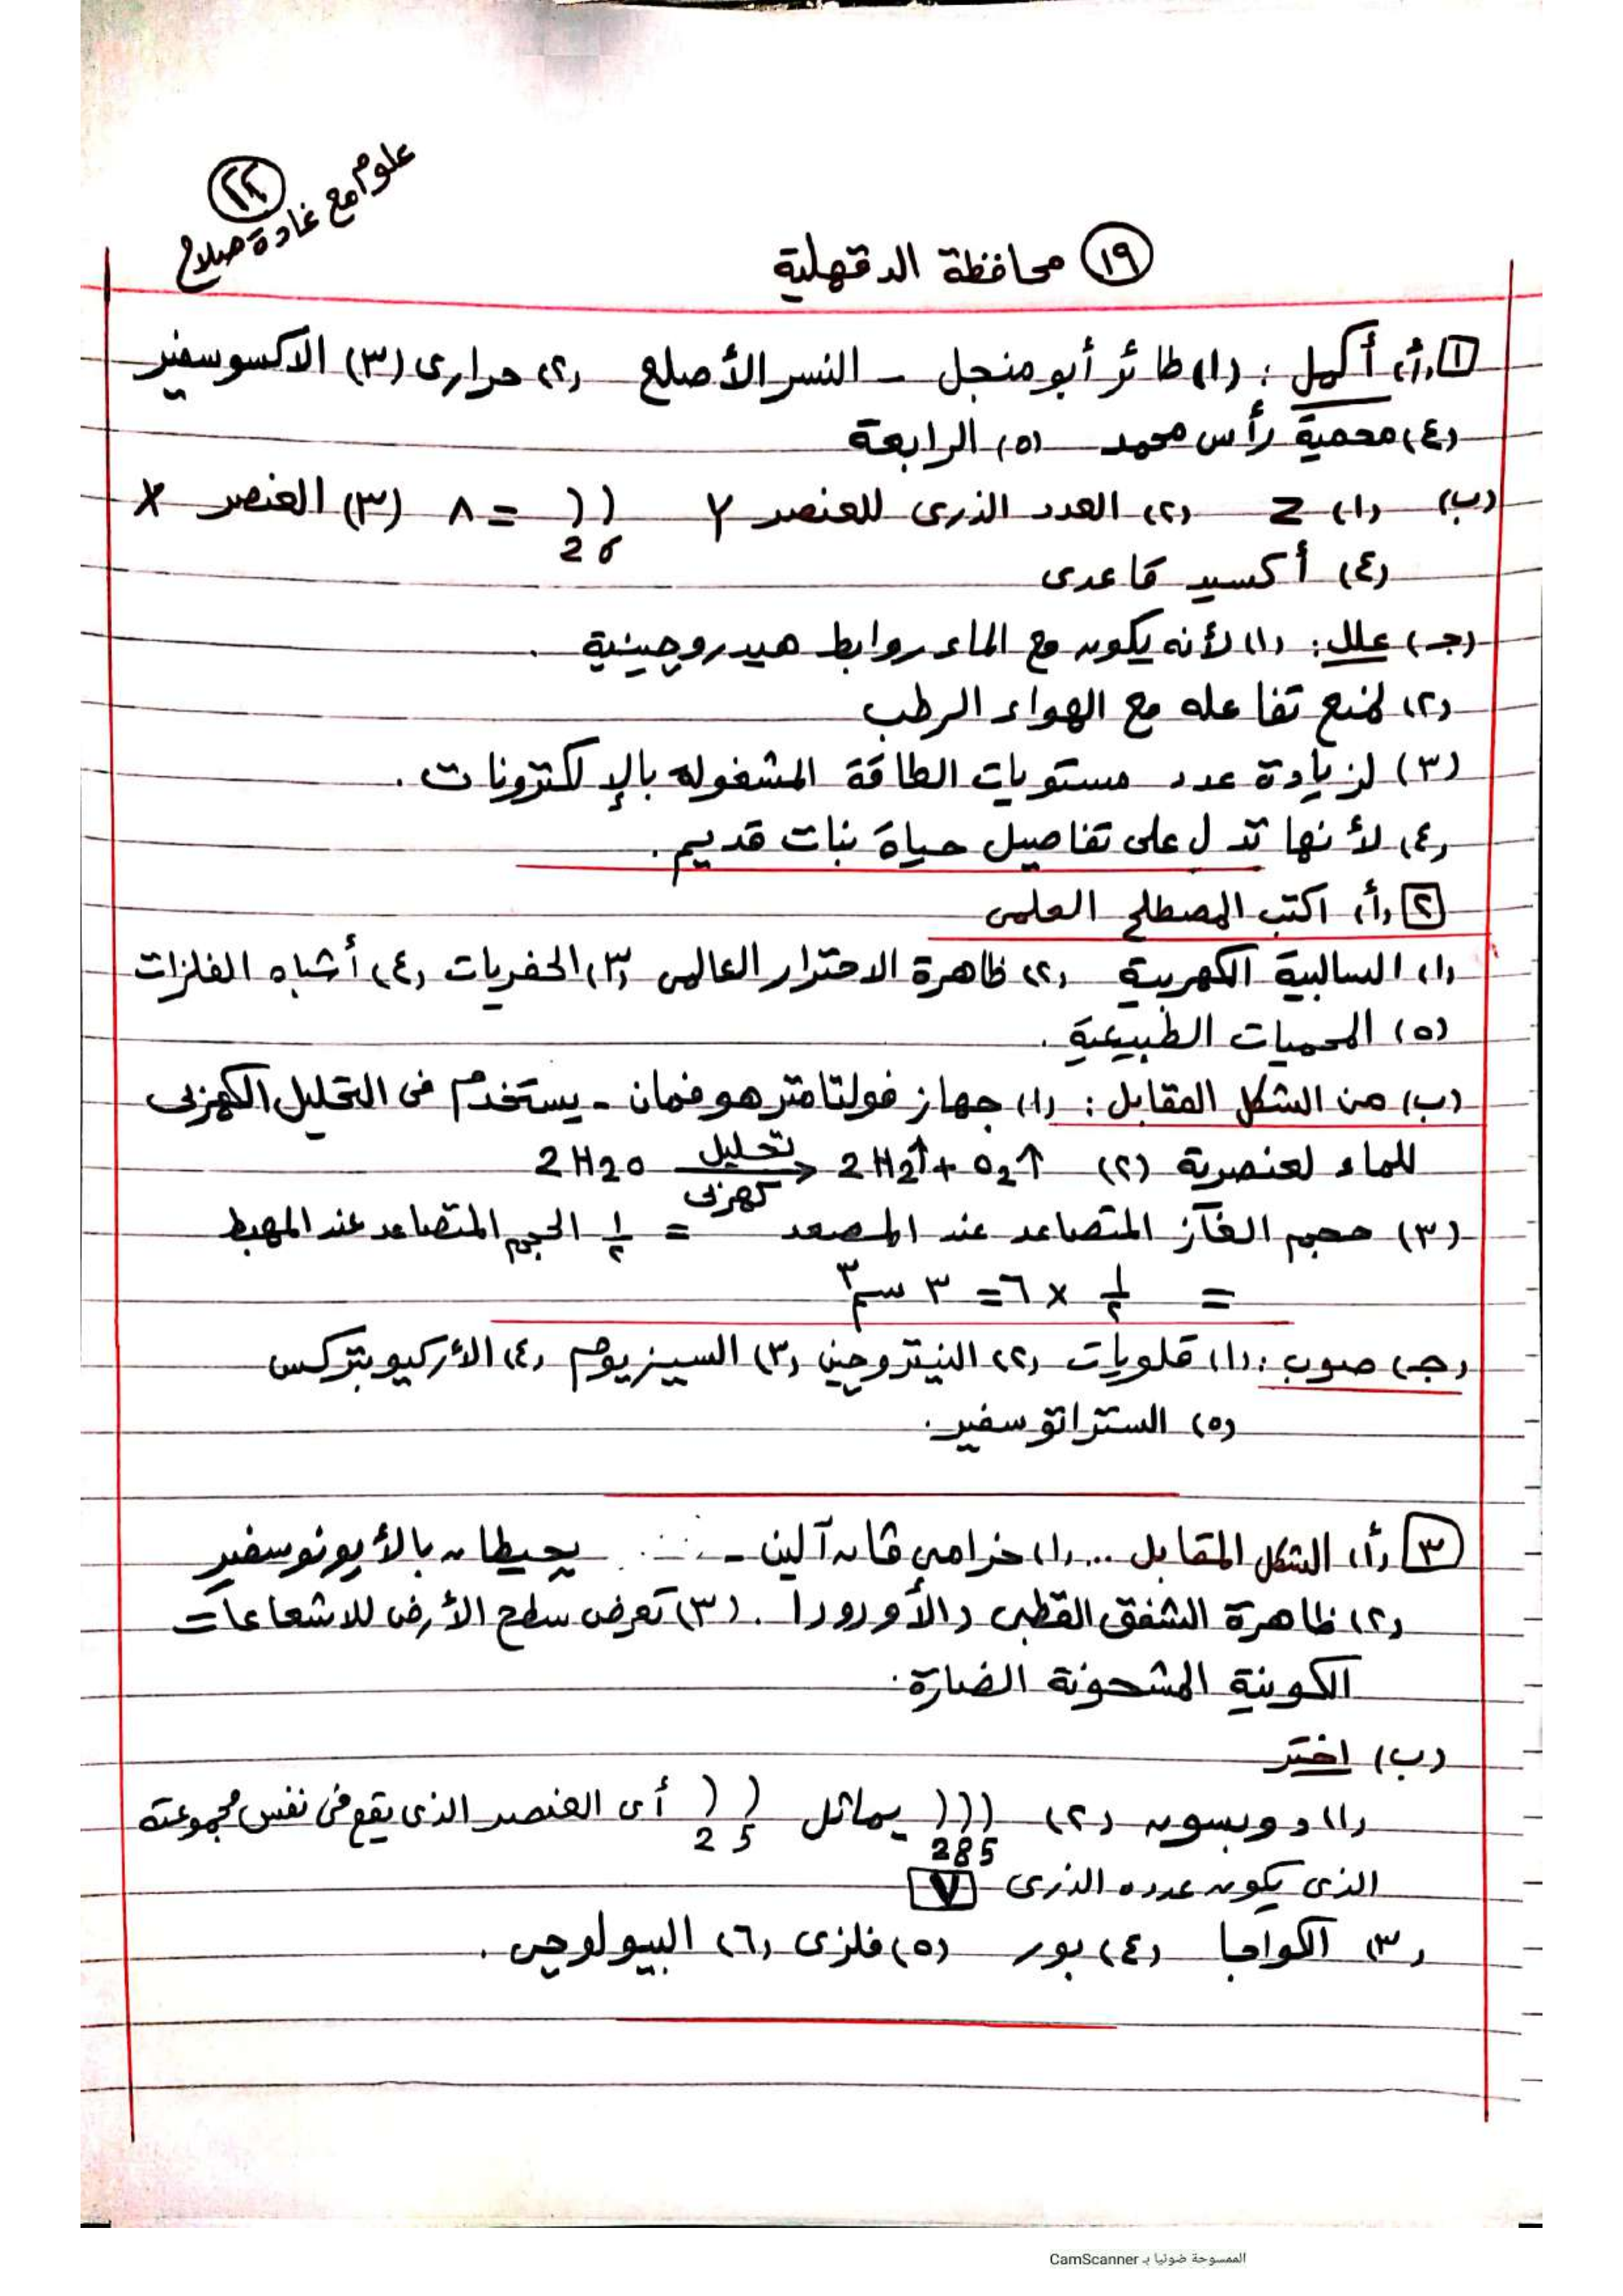 علوم مع غادة صلاح
(٢٢)
(١٩) محافظة الدقهلية
١ (أ) أكمل : (١) طائر أبو منجل - النسر الأصلع (٢) حرارى (٣) الاكسوسفير
(٤) محمية رأس محمد (٥) الرابعة
(ب) (١) Z (٢) العدد الذرى للعنصر Y ) ) = ٨ (٣) العنصر X
2 6
(٤) أكسيد قاعدى
(جـ) علل : (١) لأنه يكون مع الماء روابط هيدروجينية .
(٢) لمنع تفاعله مع الهواء الرطب
(٣) لزيادة عدد مستويات الطاقة المشغوله بالإلكترونات .
(٤) لأنها تدل على تفاصيل حياة نبات قديم .
٢ (أ) اكتب المصطلح العلمى
(١) السالبية الكهربية (٢) ظاهرة الاحترار العالمى (٣) الحفريات (٤) أشباه الفلزات
(٥) المحميات الطبيعية .
(ب) من الشكل المقابل : (١) جهاز فولتامتر هوفمان - يستخدم فى التحليل الكهربى
للماء لعنصرية (٢) 2H2O تحليل كهربى → 2H2↑ + O2↑
(٣) حجم الغاز المتصاعد عند المصعد = ١/٢ الحجم المتصاعد عند المهبط
= ١/٢ × ٦ = ٣ سم٣
(جـ) صوب : (١) قلويات (٢) النيتروجين (٣) السيزيوم (٤) الأركيوبتركس
(٥) الستراتوسفير .
٣ (أ) الشكل المقابل .. (١) حزامى فان آلين - يحيطان بالأيونوسفير
(٢) ظاهرة الشفق القطبى (الأورورا . (٣) تعرض سطح الأرض للاشعاعات
الكونية المشحونة الضارة .
(ب) اختر
(١) دوبسون (٢) ) ) ) يماثل ) ) أى العنصر الذى يقع فى نفس مجموعته
2 8 5 2 5
الذى يكون عدده الذرى ٧
(٣) الكواجا (٤) بور (٥) فلزى (٦) البيولوجى .
الممسوحة ضوئيا بـ CamScanner